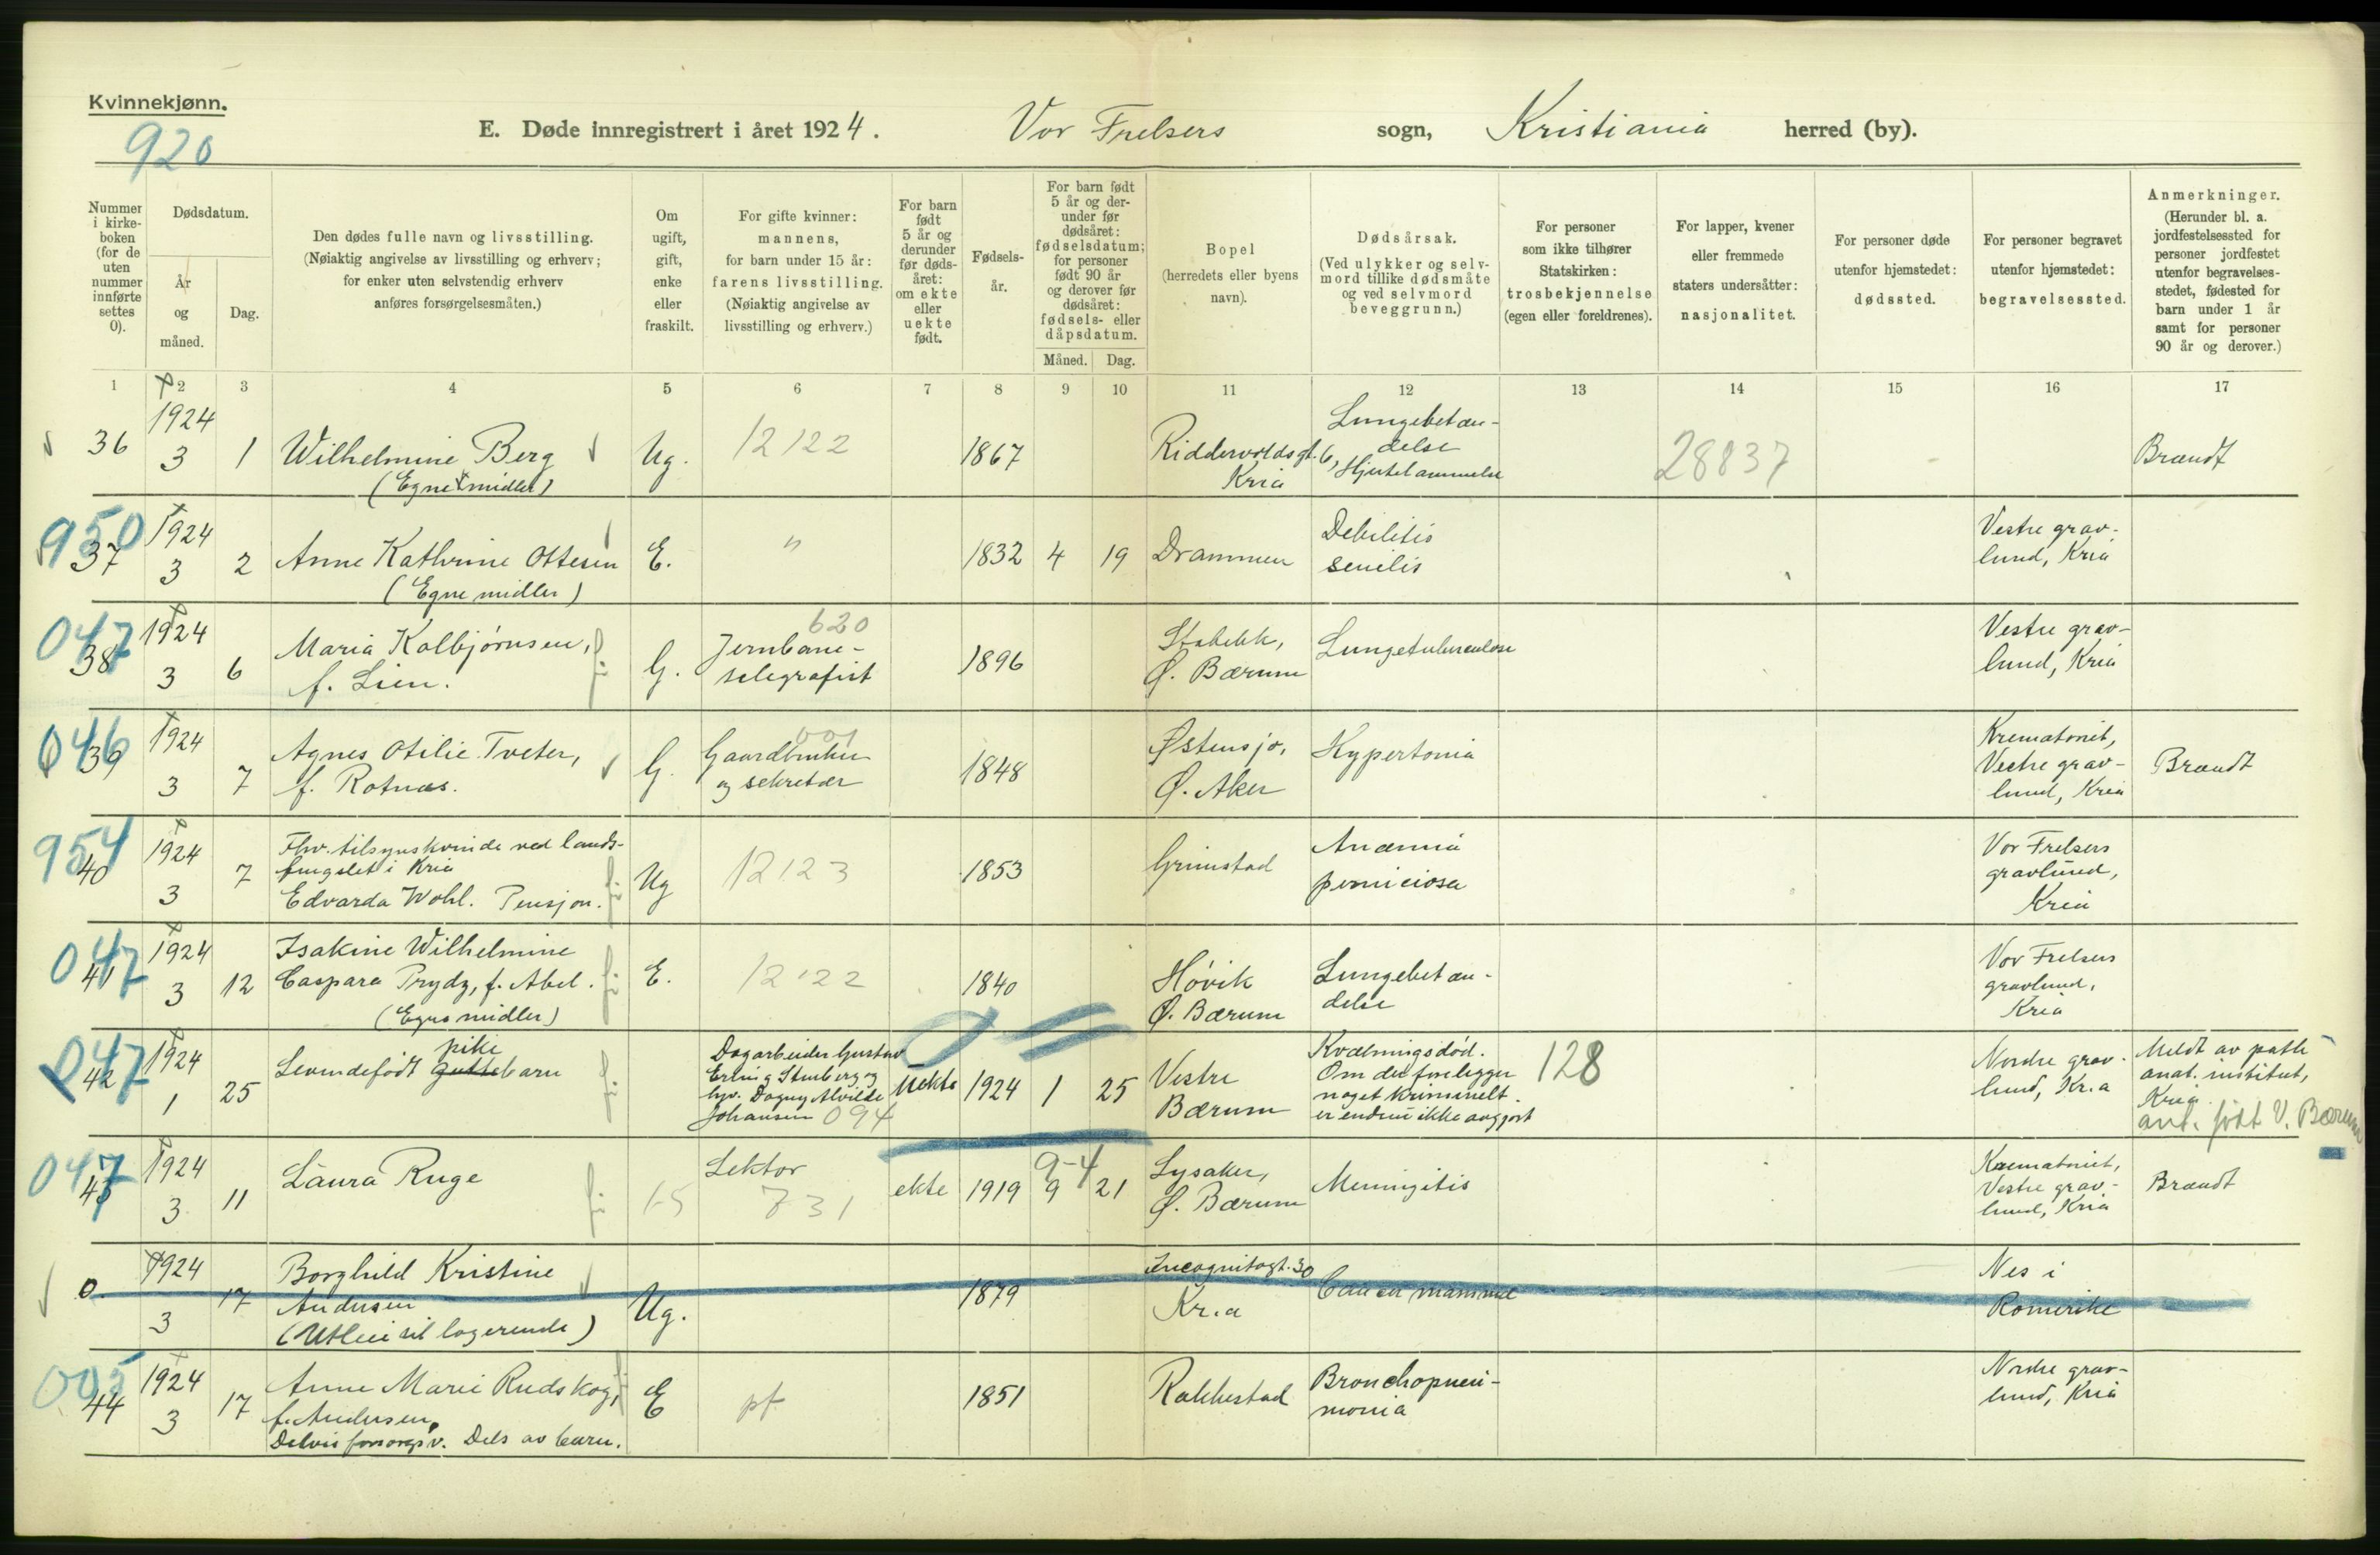 Kvinnekjønn.
920
E. Døde innregistrert i året 1924. Vor Frelsers sogn, Kristiania herred (by).
Nummer i kirke-boken (for de uten nummer innførte settes 0).
Dødsdatum.
År og måned.
Dag.
Den dødes fulle navn og livsstilling.
(Nøiaktig angivelse av livsstilling og erhverv;
for enker uten selvstendig erhverv
anføres forsørgelsesmåten.)
Om ugift, gift, enke eller fraskilt.
For gifte kvinner:
mannens,
for barn under 15 år:
farens livsstilling.
(Nøiaktig angivelse av
livsstilling og erhverv.)
For barn født 5 år og derunder før døds-året: om ekte eller uekte født.
Fødsels-år.
For barn født 5 år og der-under før dødsåret: fødselsdatum; for personer født 90 år og derover før dødsåret: fødsels- eller dåpsdatum.
Måned. Dag.
Bopel
(herredets eller byens
navn).
Dødsårsak.
(Ved ulykker og selv-
mord tillike dødsmåte
og ved selvmord
beveggrunn.)
For personer
som ikke tilhører
Statskirken:
trosbekjennelse
(egen eller foreldrenes).
For lapper, kvener
eller fremmede
staters undersåtter:
nasjonalitet.
For personer døde
utenfor hjemstedet:
dødssted.
For personer begravet
utenfor hjemstedet:
begravelsessted.
Anmerkninger.
(Herunder bl. a.
jordfestelsessted for
personer jordfestet
utenfor begravelses-
stedet, fødested for
barn under 1 år
samt for personer
90 år og derover.)
1 2 3 4 5 6 7 8 9 10 11 12 13 14 15 16 17
36 1924 3 1 Wilhelmine Berg
(Egne midler)
Ug. 12122 1867 Riddervoldsgt. 6,
Kria
Lungebetæn-
delse
Hjertelammelse
28837 Brandt
950
37 1924 3 2 Anne Kathrine Ottesen
(Egne midler)
E. " 1832 4 19 Drammen
Debilitis
senilis
Vestre grav-
lund, Kria
047
38 1924 3 6 Maria Kolbjørnsen,
f. Lien.
G. 620
Jernbane-
telegrafist
1896 Stabekk,
Ø. Bærum
Lungetuberculose
Vestre grav-
lund, Kria
046
39 1924 3 7 Agnes Otilie Tveter,
f. Rotnæs.
G. 001
Gaardbruker
og sekretær
1848 Østensjø,
Ø. Aker
Hypertonia
Krematoriet,
Vestre grav-
lund, Kria
Brandt
954
40 1924 3 7 Fhv. tilsynskvinde ved lands-
fengslet i Kria
Edvarda Wohl. Pensjon.
Ug 12123 1853 Grimstad
Anæmia
perniciosa
Vor Frelsers
gravlund,
Kria
047
41 1924 3 12 Isakine Wilhelmine
Caspara Prydz, f. Abel.
(Egne midler)
E. 12122 1840 Høvik
Ø. Bærum
Lungebetæn-
delse
Vor Frelsers
gravlund,
Kria
047
42 1924 1 25 Levendefødt guttebarn
pike
Dagarbeider Gustav
Erling Stenberg og
hjv. Dagny Alvilde
Johansen 094
Uekte 1924 1 25 Vestre
Bærum
Kvælningsdød.
Om der foreligger
noget kriminelt
er endnu ikke avgjort
128
Nordre grav-
lund, Kr.a
Meldt av path
anat. institut,
Kria
ant. født V. Bærum
047
43 1924 3 11 Laura Ruge
15 Lektor
731
ekte 1919 9-4
9 21 Lysaker,
Ø. Bærum
Meningitis
Krematoriet,
Vestre grav-
lund, Kria
Brandt
0. 1924 3 17 Borghild Kristine
Andersen
(Utleie til logerende)
Ug. 1879 Incognitogt. 30
Kr.a
Cancer mammae
Nes i
Romerike
005
44 1924 3 17 Anne Marie Rudskog,
f. Andersen,
Delvis forsorgsv. Dels av barn.
E pf 1851 Rakkestad
Bronchopneu-
monia
Nordre grav-
lund, Kria